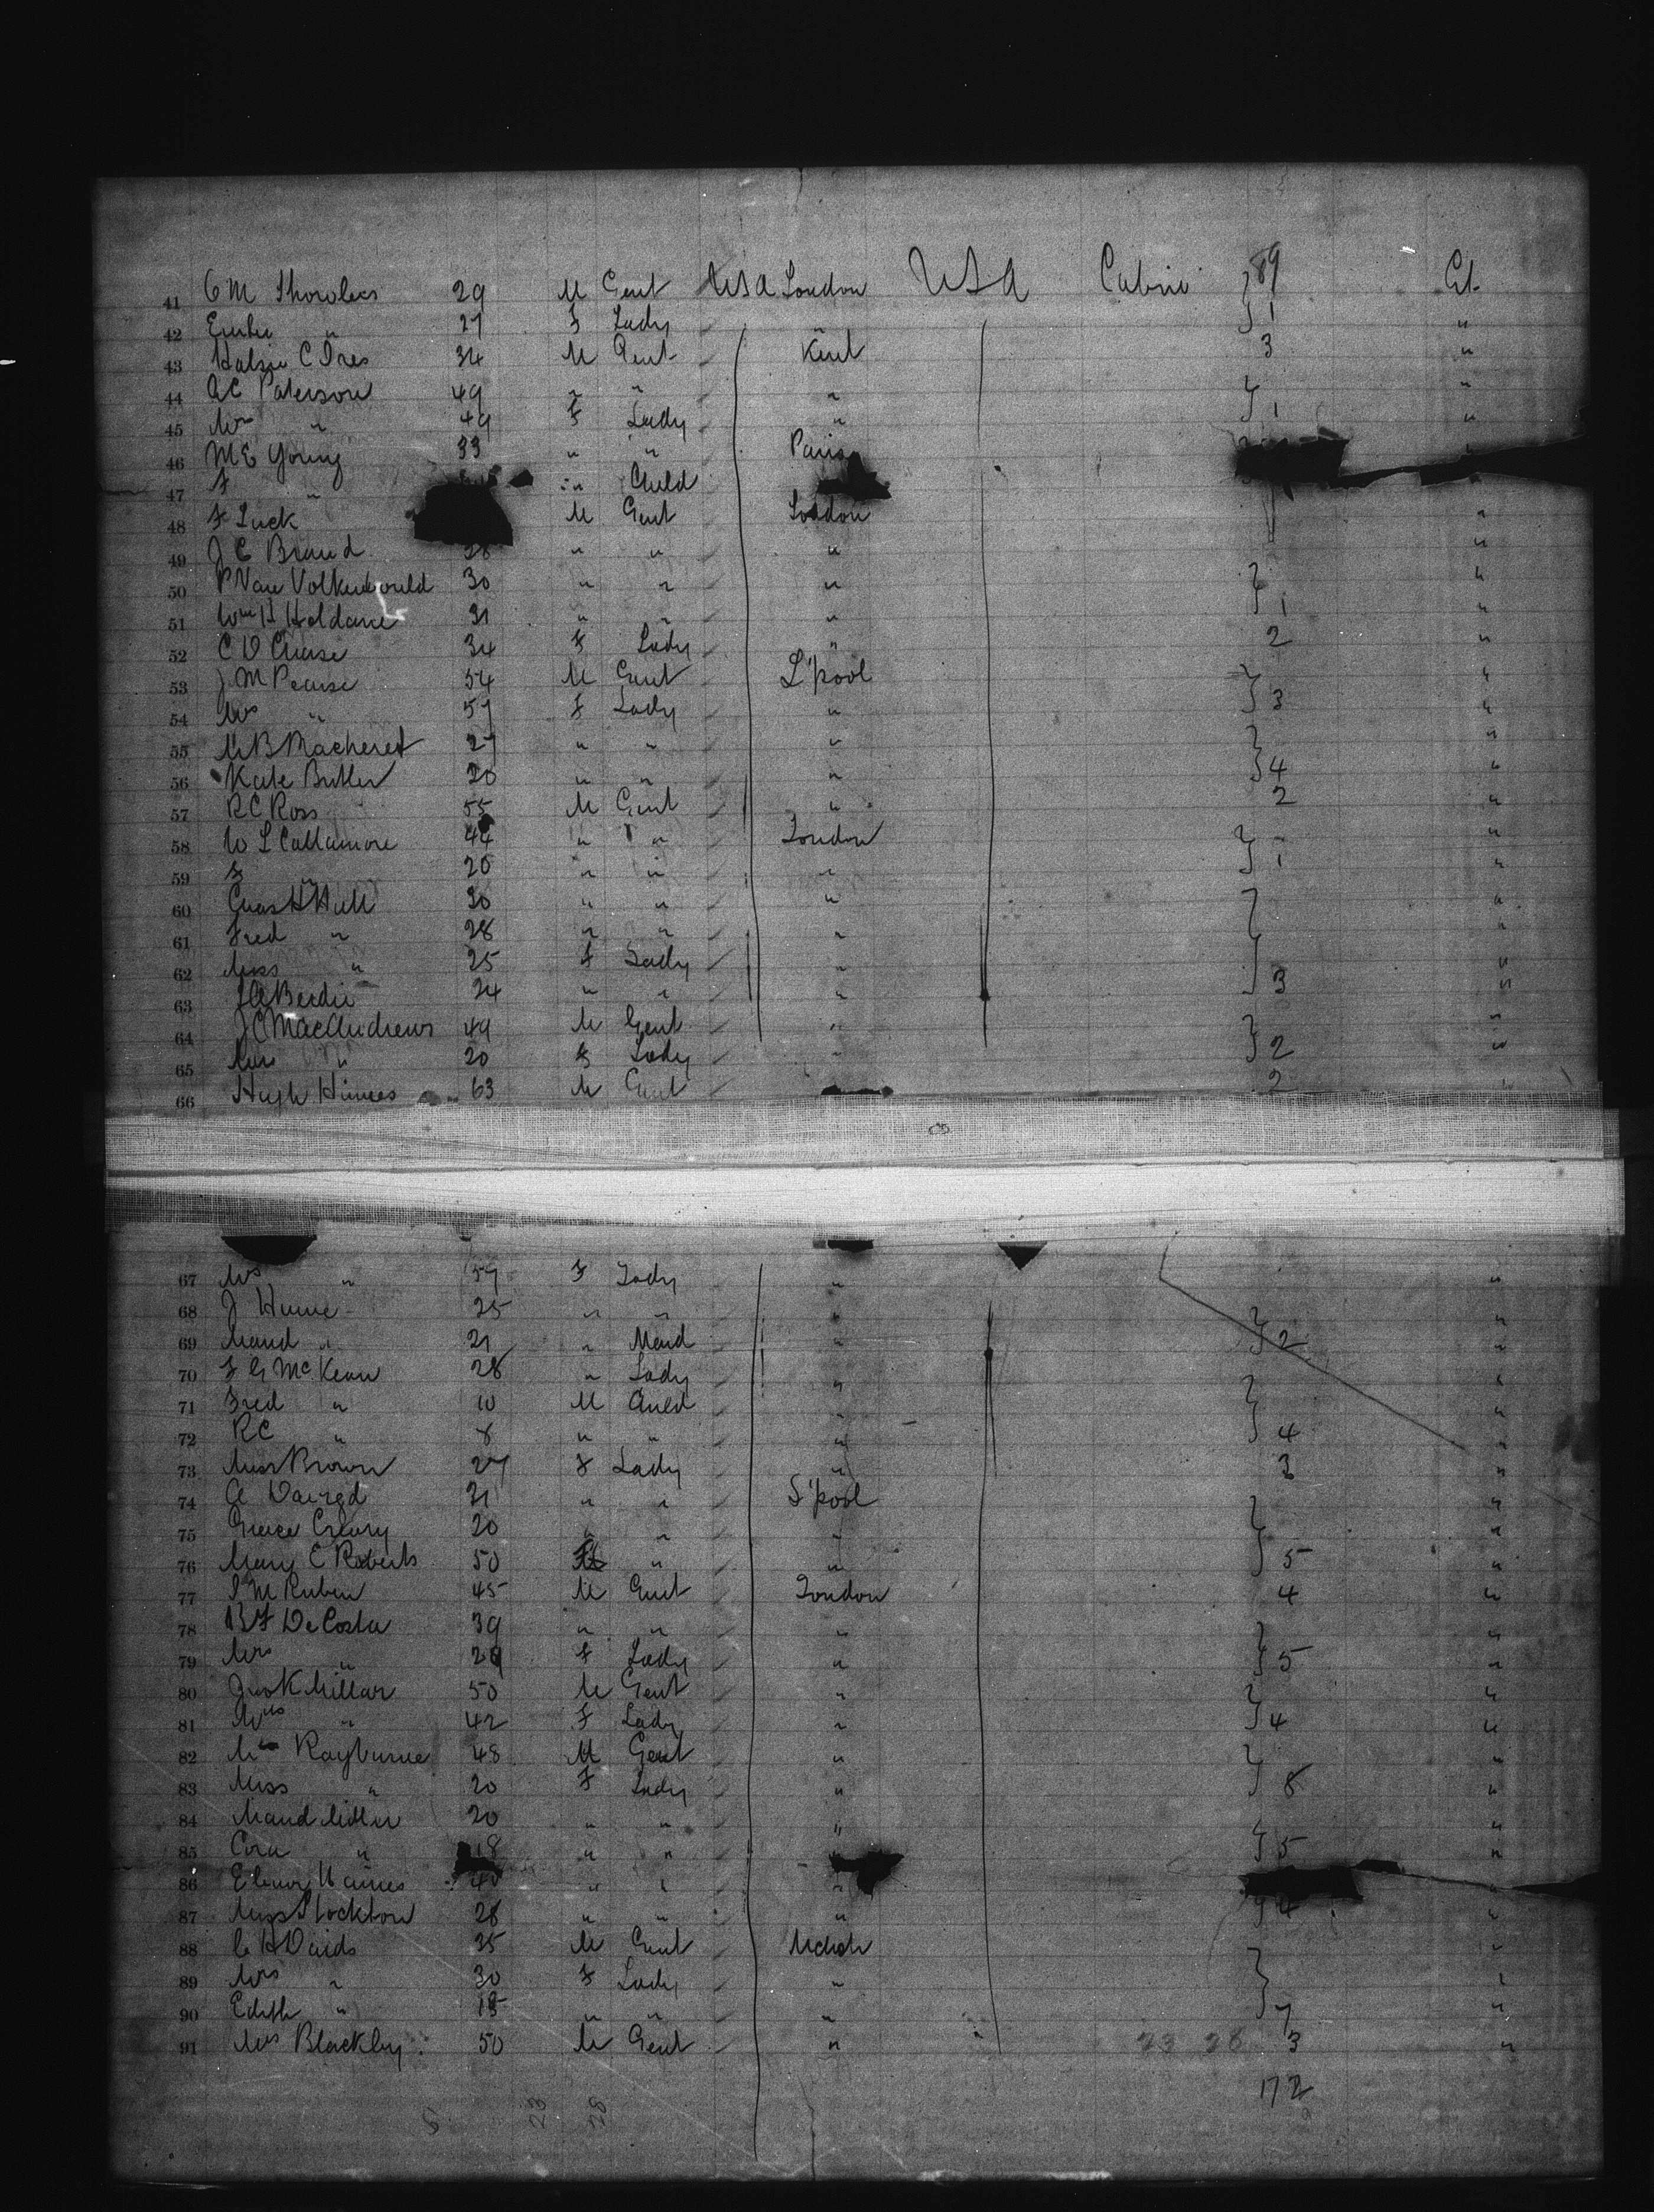 89
41 C M Showless 29 M Gent USA London USA Cabin Ct.
42 " 27 F Lady " } 1 "
43 C Ires 34 M Gent Kent 3 "
44 A C Paterson 49 " " " "
45 Mrs " 49 F Lady " } 1 "
46 M E Young 33 " " Paris
47 F " " Child
48 F Luck M Gent London "
49 J C Brand 28 " " " "
50 P Van 30 " " " "
51 Wm H Haldane 31 " " " } 1 "
52 C D Chase 34 F Lady " 2 "
53 J M Pearse 54 M Gent L'pool "
54 Mrs " 57 F Lady " } 3 "
55 M B Macheret 27 " " " "
56 Kate Butler 20 " " " } 4 "
57 R C Ross 55 M Gent " 2 "
58 W L Collamore 44 " " London "
59 F " 20 " " " } 1 "
60 Chas H Hull 30 " " " "
61 Fred " 28 " " " "
62 Miss " 25 F Lady " "
63 Berdie 24 " " " } 3 "
64 J C MacAndrews 49 M Gent " "
65 Mrs " 20 F Lady " } 2 "
66 Hugh Himes 63 M Gent 2 "
67 Mrs " 59 F Lady " "
68 J Hume 25 " " " "
69 Maud " 21 " Maid " } 2 "
70 F G McKean 28 " Lady " "
71 Fred " 10 M Child " "
72 R C " 8 " " " } 4 "
73 Miss Brown 27 F Lady " 3 "
74 A 31 " " L'pool "
75 Grace Creary 20 " " " "
76 Mary C Roberts 50 F " " } 5 "
77 S M Ruben 45 M Gent London 4 "
78 B F De Costa 39 " " " "
79 Mrs " 29 F Lady " } 5 "
80 Jno K Millar 50 M Gent " "
81 Mrs " 42 F Lady " } 4 "
82 Mr Rayburne 48 M Gent " "
83 Miss " 20 F Lady " } 8 "
84 Maud Miller 20 " " " "
85 Cora " 18 " " " } 5 "
86 Elinor Haines 40 " " " "
87 Miss Stockton 28 " " " } 4 "
88 C H Davids 35 M Gent "
89 Mrs " 30 F Lady " "
90 Edith " 15 " " " } 7 "
91 Mrs Blackby 50 M Gent " 23 28 3 "
172
23 28